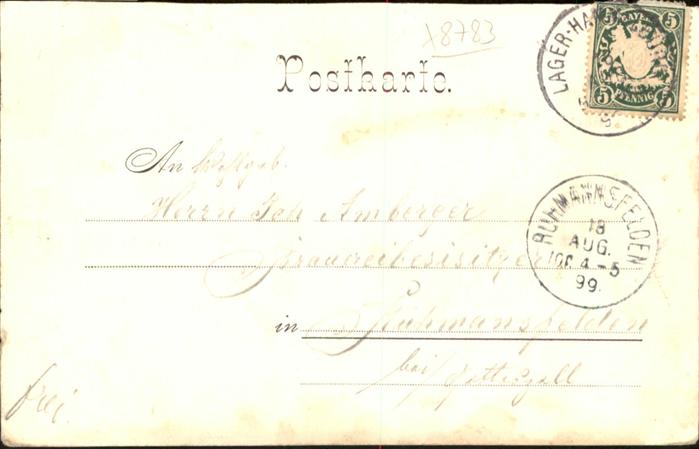 +8783
Postkarte.
LAGER-HA
5 BAYERN 5
5 PFENNIG 5
An Wohlgeb.
Herrn Joh Amberger
Brauereibesitzer
in Ruhmansfelden
bei Gotteszell
frei.
RUHMANNSFELDEN
18
AUG.
4-5
99.